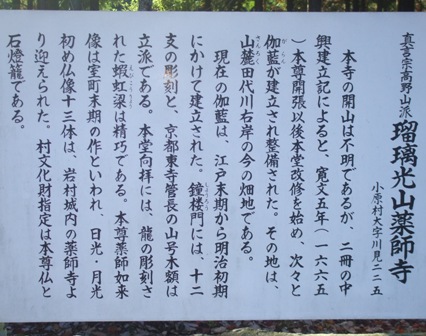 真言宗高野山派 瑠璃光山薬師寺
小原村大字川見二二五
本寺の開山は不明であるが、二冊の中
興建立記によると、寛文五年(一六六五
)本尊開張以後本堂改修を始め、次々と
伽藍が建立され整備された。その地は、
山麓田代川右岸の今の畑地である。
現在の伽藍は、江戸末期から明治初期
にかけて建立された。鐘楼門には、十二
支の彫刻と、京都東寺管長の山号木額は
立派である。本堂向拝には、龍の彫刻さ
れた蝦虹梁は精巧である。本尊薬師如来
像は室町末期の作といわれ、日光・月光
初め仏像十三体は、岩村城内の薬師寺よ
り迎えられた。村文化財指定は本尊仏と
石燈籠である。